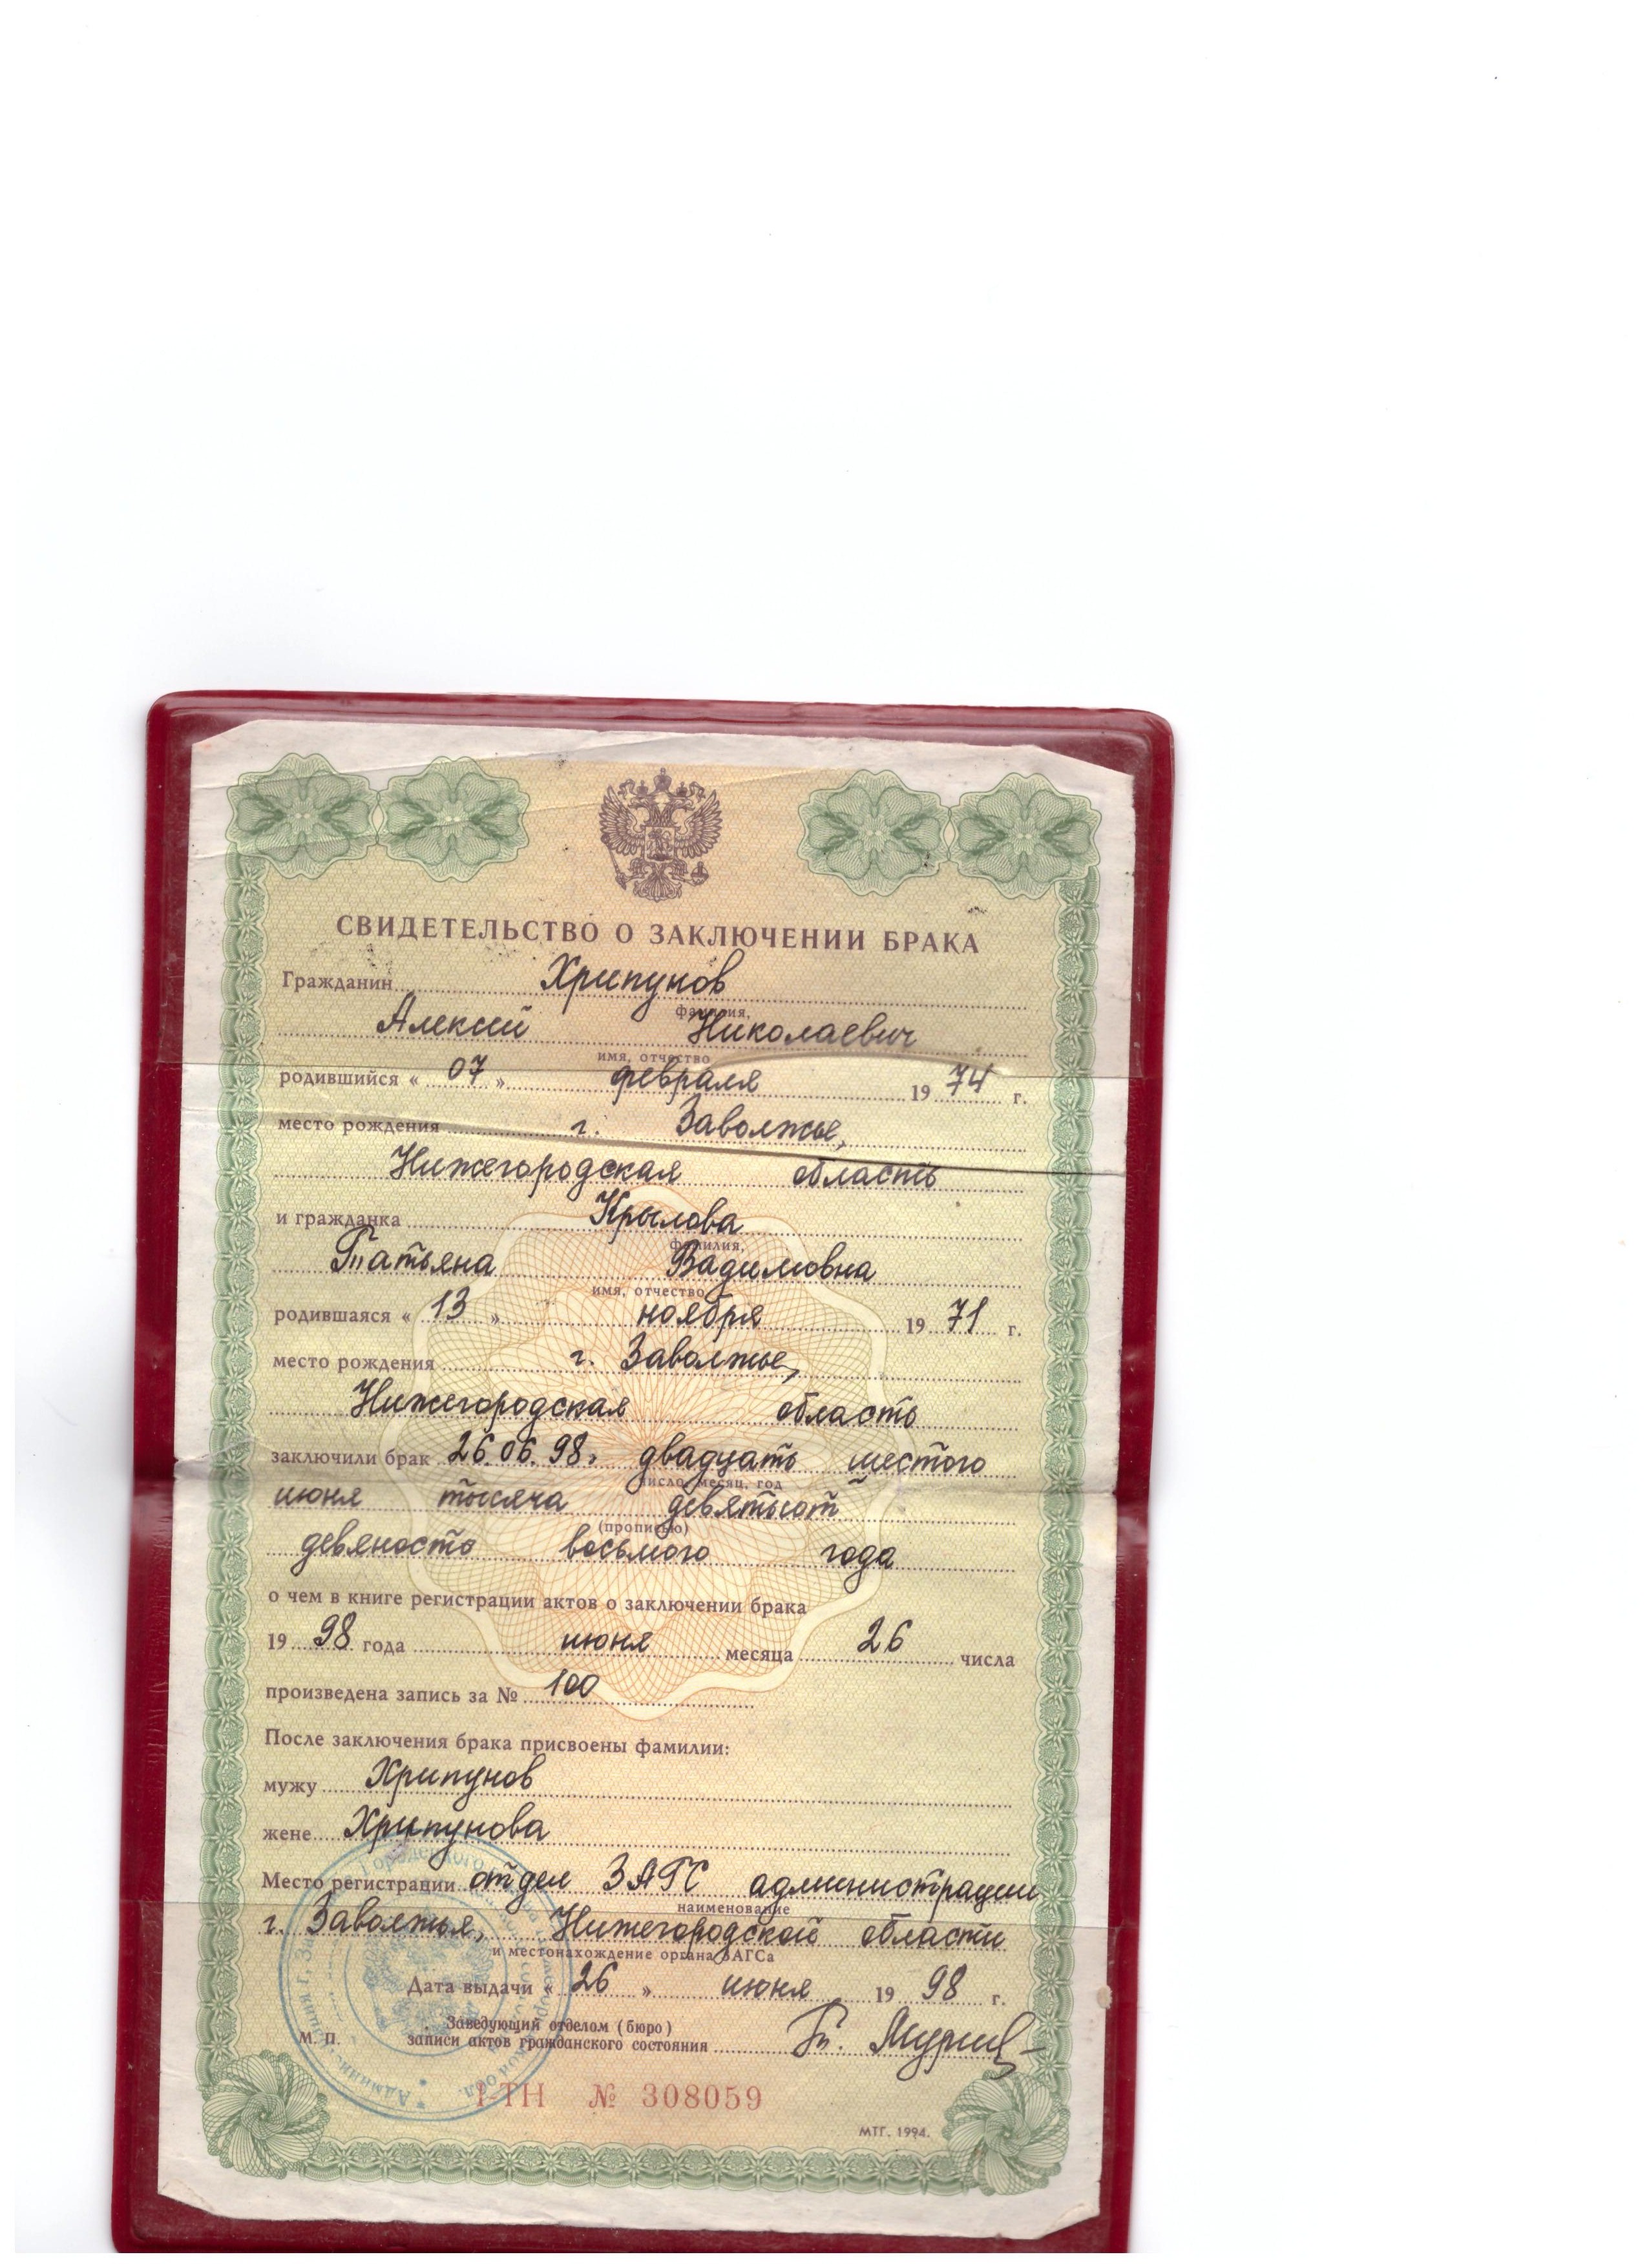 СВИДЕТЕЛЬСТВО О ЗАКЛЮЧЕНИИ БРАКА
Гражданин Хрипунов
фамилия,
Алексей Николаевич
имя, отчество
родившийся « 07 » февраля 19 74 г.
место рождения г. Заволжье,
Нижегородская область
и гражданка Крылова
фамилия,
Татьяна Вадимовна
имя, отчество
родившаяся « 13 » ноября 19 71 г.
место рождения г. Заволжье,
Нижегородская область
заключили брак 26.06.98г. двадцать шестого
число, месяц, год
июня тысяча девятьсот
(прописью)
девяносто восьмого года
о чем в книге регистрации актов о заключении брака
19 98 года июня месяца 26 числа
произведена запись за № 100
После заключения брака присвоены фамилии:
мужу Хрипунов
жене Хрипунова
Место регистрации отдел ЗАГС администрации
наименование
г. Заволжья, Нижегородской области
и местонахождение органа ЗАГСа
Дата выдачи « 26 » июня 19 98 г.
Заведующий отделом (бюро)
М. П. записи актов гражданского состояния
I-ТН № 308059
МТГ. 1994.